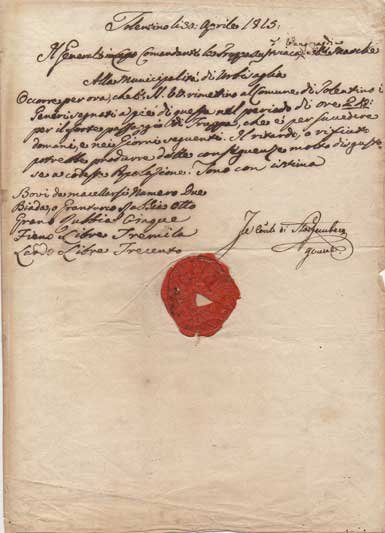 Tolentino li 30: Aprile 1815:
Il General in capo Comandante le Truppe Austriache nelle Marche
Alla Municipalità di Urbisaglia
Occorre per ora, che le SS. VV. rimettino al Comune di Tolentino i
Generi segnati a piedi di questa nel periodo di ore 24:
per il forte passaggio di Truppa, che è per succedere
domani, e nei Giorni seguenti. Il ritardo, o rifiuto
potrebbe produrre delle conseguenze molto disguste-
se a codesta Popolazione. Sono con istima
Bovi da macello Numero Due
Biada, o Granturco Otto
Grano Rubbia Cinque
Fieno Libre Tremila
Lardo Libre Trecento
Conte di